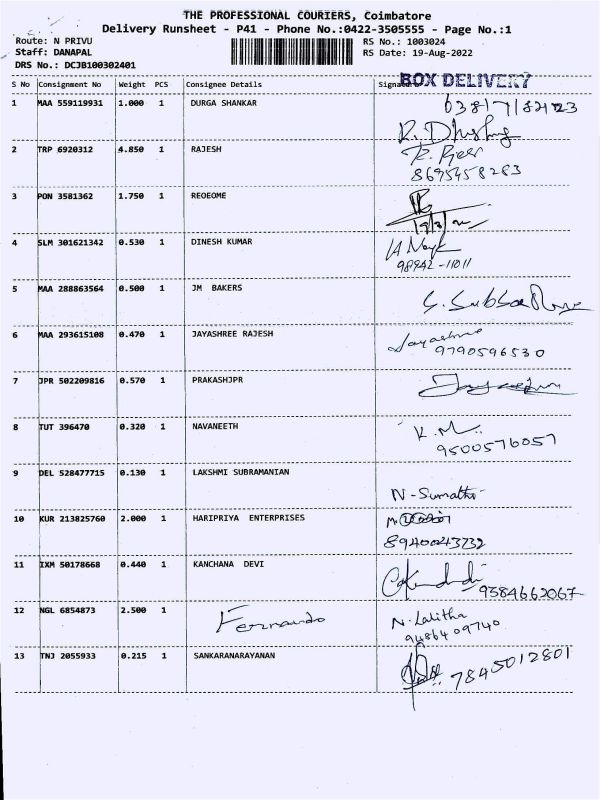 THE PROFESSIONAL COURIERS, Coimbatore
Delivery Runsheet - P41 - Phone No.:0422-3505555 - Page No.:1
Route: N PRIVU RS No.: 1003024
Staff: DANAPAL RS Date: 19-Aug-2022
DRS No.: DCJB100302401
BOX DELIVERY
S No Consignment No Weight PCS Consignee Details
1 MAA 559119931 1.000 1 DURGA SHANKAR
2 TRP 6920312 4.850 1 RAJESH
8695458283
3 PON 3581362 1.750 1 REOEOME
4 SLM 301621342 0.530 1 DINESH KUMAR
98942-11011
5 MAA 288863564 0.500 1 JM BAKERS
6 MAA 293615108 0.470 1 JAYASHREE RAJESH
9790596530
7 JPR 502209816 0.570 1 PRAKASHJPR
8 TUT 396470 0.320 1 NAVANEETH K.M.
9500576057
9 DEL 528477715 0.130 1 LAKSHMI SUBRAMANIAN
N-Sumathi
10 KUR 213825760 2.000 1 HARIPRIYA ENTERPRISES
8940043732
11 IXM 50178668 0.440 1 KANCHANA DEVI
9384662067
12 NGL 6854873 2.500 1 Fernando N.Lalitha
9486409740
13 TNJ 2055933 0.215 1 SANKARANARAYANAN 7845012801